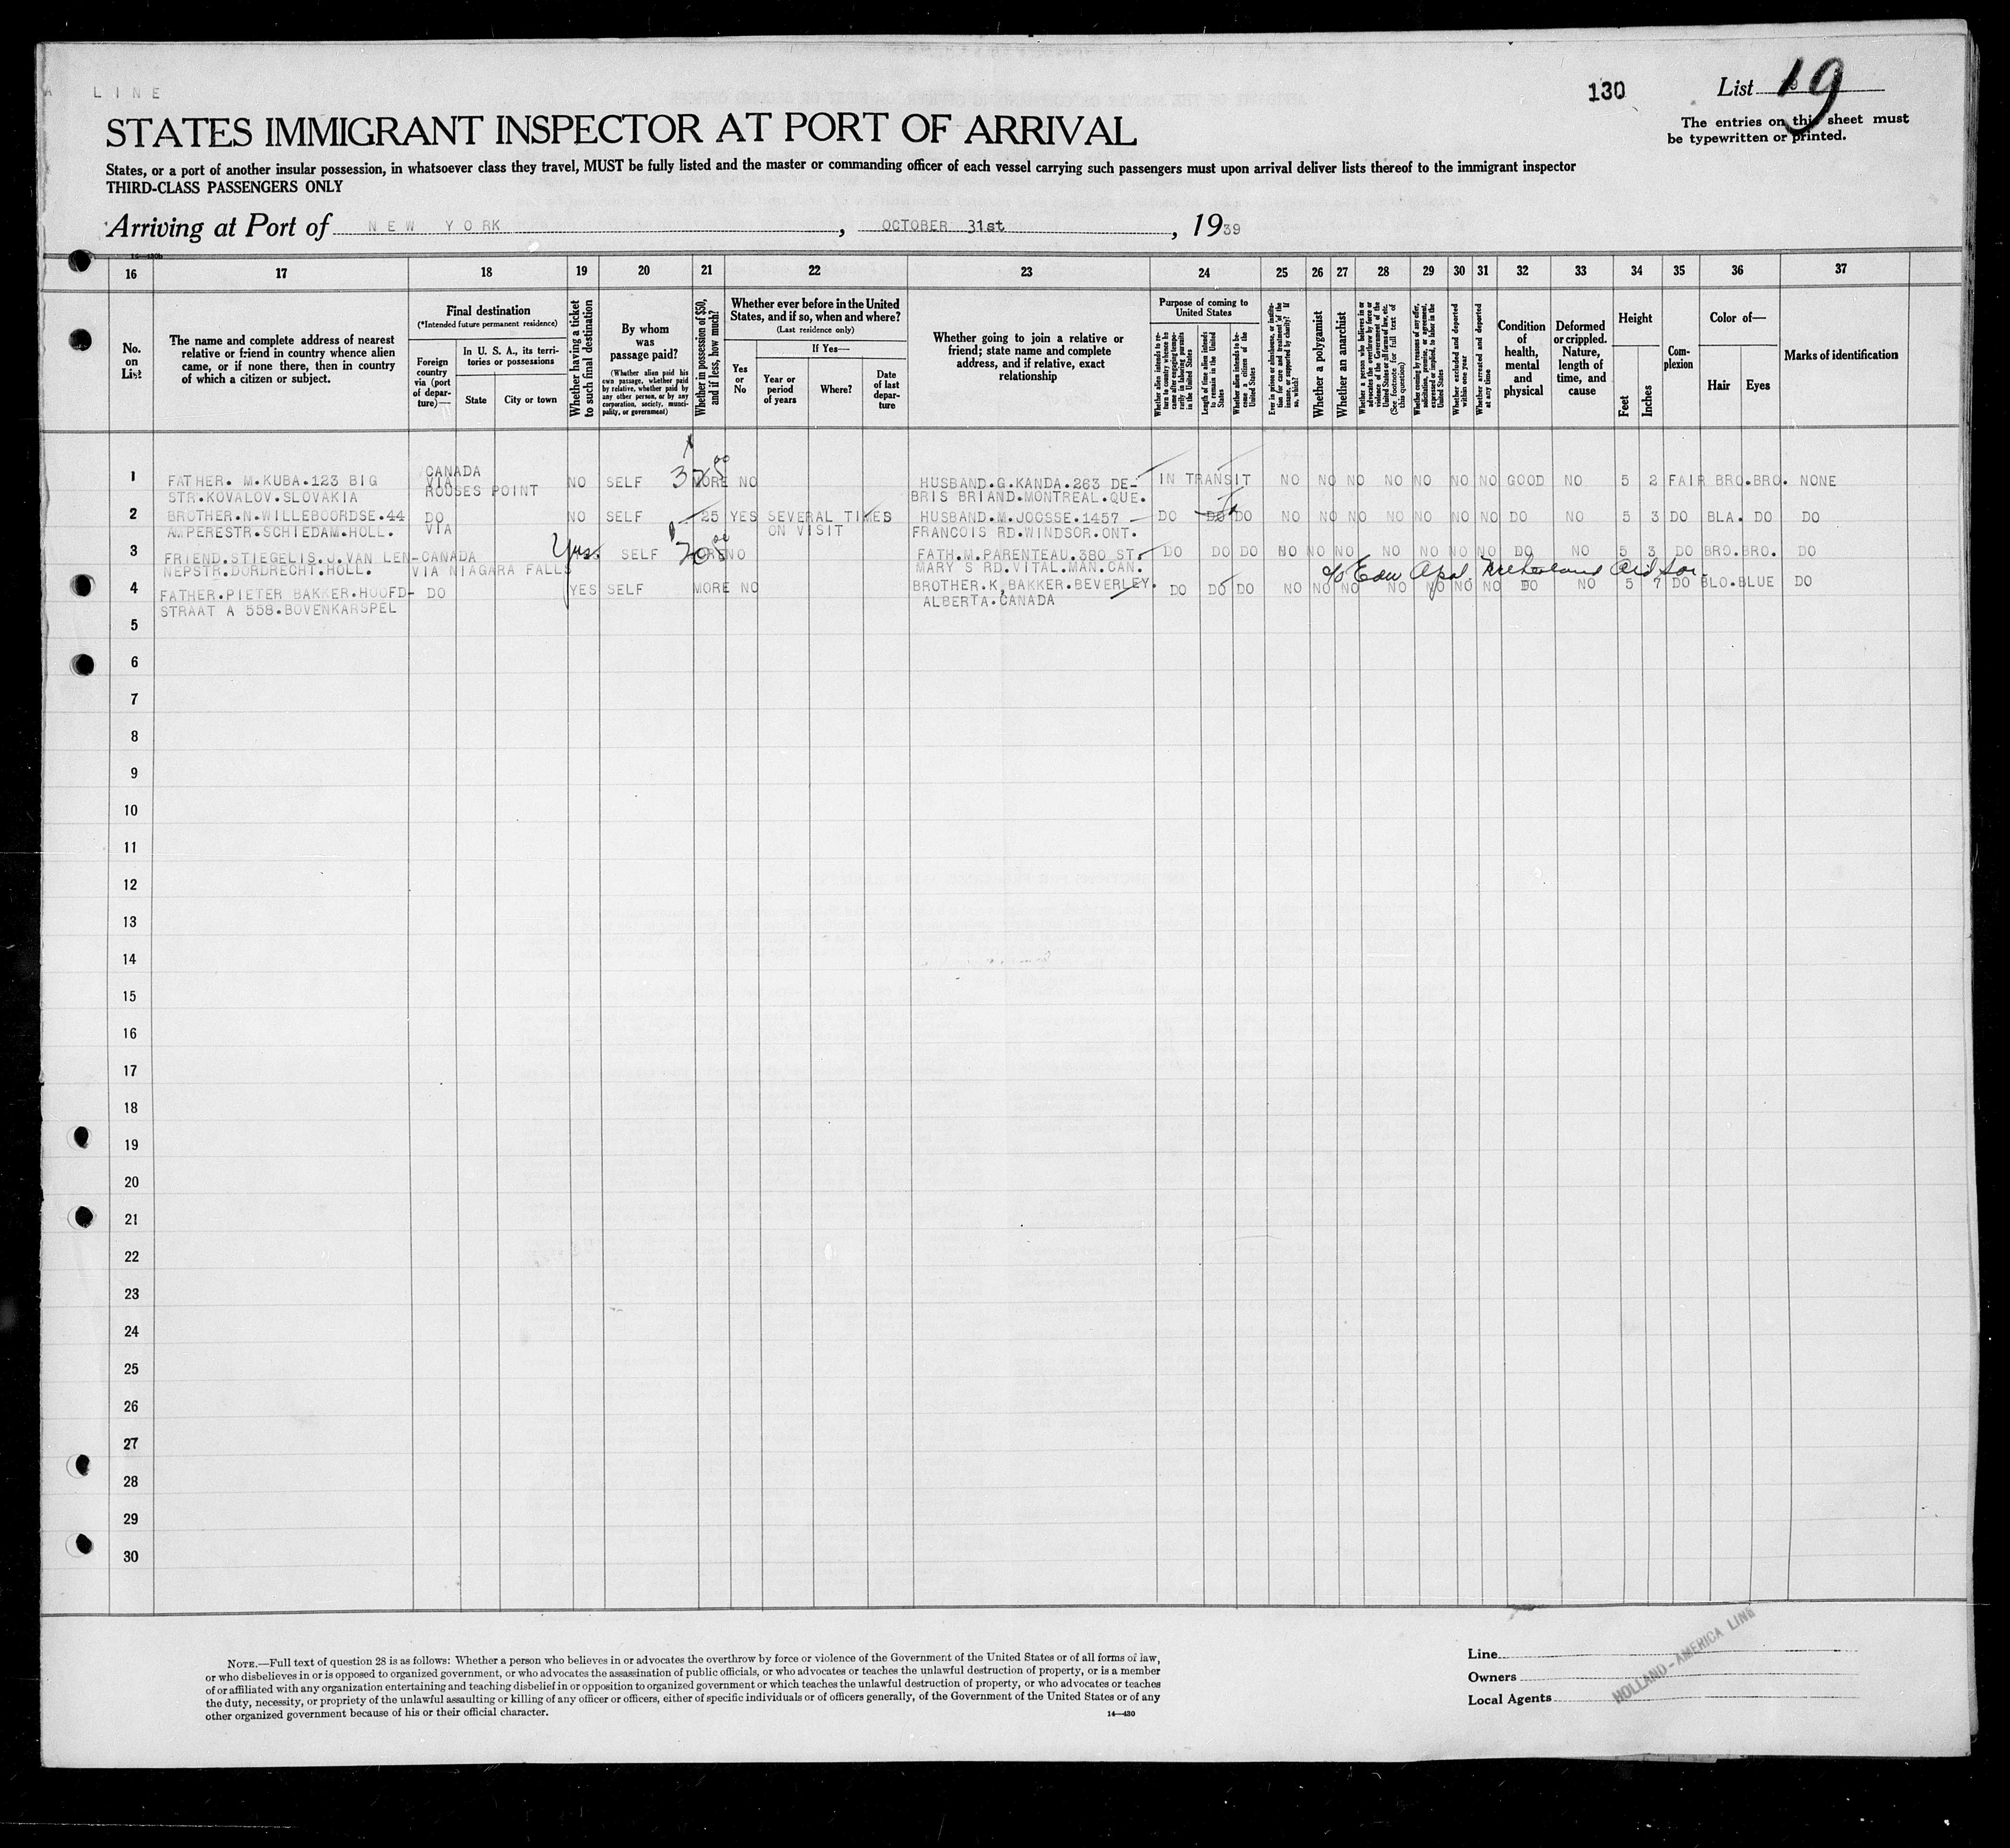 LINE
130
List 19
The entries on this sheet must
be typewritten or printed.
STATES IMMIGRANT INSPECTOR AT PORT OF ARRIVAL
States, or a port of another insular possession, in whatsoever class they travel, MUST be fully listed and the master or commanding officer of each vessel carrying such passengers must upon arrival deliver lists thereof to the immigrant inspector
THIRD-CLASS PASSENGERS ONLY
Arriving at Port of NEW YORK, OCTOBER 31st, 1939
16 17 18 19 20 21 22 23 24 25 26 27 28 29 30 31 32 33 34 35 36 37
No.
on
List
The name and complete address of nearest
relative or friend in country whence alien
came, or if none there, then in country
of which a citizen or subject.
Final destination
(*Intended future permanent residence)
Foreign
country
via (port
of depar-
ture)—
In U. S. A., its terri-
tories or possessions
State
City or town
Whether having a ticket
to such final destination
By whom
was
passage paid?
(Whether alien paid his
own passage, whether paid
by relative, whether paid by
any other person, or by any
corporation, society, munici-
pality, or government)
Whether in possession of $50,
and if less, how much?
Whether ever before in the United
States, and if so, when and where?
(Last residence only)
Yes
or
No
If Yes—
Year or
period
of years
Where?
Date
of last
depar-
ture
Whether going to join a relative or
friend; state name and complete
address, and if relative, exact
relationship
Purpose of coming to
United States
Whether alien intends to re-
turn to country whence he
came after engaging tempo-
rarily in laboring pursuits
in the United States
Length of time alien intends
to remain in the United
States
Whether alien intends to be-
come a citizen of the
United States
Ever in prison or almshouse, or institu-
tion for care and treatment of the
insane, or supported by charity? If
so, which?
Whether a polygamist
Whether an anarchist
Whether a person who believes in or
advocates the overthrow by force or
violence of the Government of the
United States or all forms of law, etc.
(See footnote for full text of
this question)
Whether coming by reason of any offer,
solicitation, promise, or agreement,
expressed or implied, to labor in the
United States
Whether excluded and deported
within one year
Whether arrested and deported
at any time
Condition
of
health,
mental
and
physical
Deformed
or crippled.
Nature,
length of
time, and
cause
Height
Feet
Inches
Com-
plexion
Color of—
Hair
Eyes
Marks of identification
1 FATHER. M.KUBA.123 BIG CANADA NO SELF MORE NO HUSBAND.G.KANDA.263 DE- IN TRANSIT NO NO NO NO NO NO NO GOOD NO 5 2 FAIR BRO.BRO. NONE
STR.KOVALOV.SLOVAKIA VIA ROUSES POINT BRIS BRIAND.MONTREAL.QUE.
2 BROTHER.N.WILLEBOORDSE.44 DO NO SELF 25 YES SEVERAL TIMES HUSBAND.M.JOOSSE.1457 DO DO DO NO NO NO NO NO NO NO DO NO 5 3 DO BLA. DO DO
AMPERESTR.SCHIEDAM.HOLL. VIA ON VISIT FRANCOIS RD.WINDSOR.ONT.
3 FRIEND.STIEGELIS.J.VAN LEN-CANADA Yes. SELF NO FATH.M.PARENTEAU.380 ST. DO DO DO NO NO NO NO NO NO NO DO NO 5 3 DO BRO.BRO. DO
NEPSTR.DORDRECHT.HOLL. VIA NIAGARA FALLS MARY S RD.VITAL.MAN.CAN.
4 FATHER.PIETER BAKKER.HOOFD- DO YES SELF MORE NO BROTHER.K.BAKKER.BEVERLEY. DO DO DO NO NO NO NO NO NO NO DO NO 5 7 DO BLO.BLUE DO
STRAAT A 558.BOVENKARSPEL ALBERTA.CANADA
5
6
7
8
9
10
11
12
13
14
15
16
17
18
19
20
21
22
23
24
25
26
27
28
29
30
NOTE.—Full text of question 28 is as follows: Whether a person who believes in or advocates the overthrow by force or violence of the Government of the United States or of all forms of law,
or who disbelieves in or is opposed to organized government, or who advocates the assassination of public officials, or who advocates or teaches the unlawful destruction of property, or is a member
of or affiliated with any organization entertaining and teaching disbelief in or opposition to organized government or which teaches the unlawful destruction of property, or who advocates or teaches
the duty, necessity, or propriety of the unlawful assaulting or killing of any officer or officers, either of specific individuals or of officers generally, of the Government of the United States or of any
other organized government because of his or their official character.
14—430
Line
Owners
Local Agents
HOLLAND-AMERICA LINE